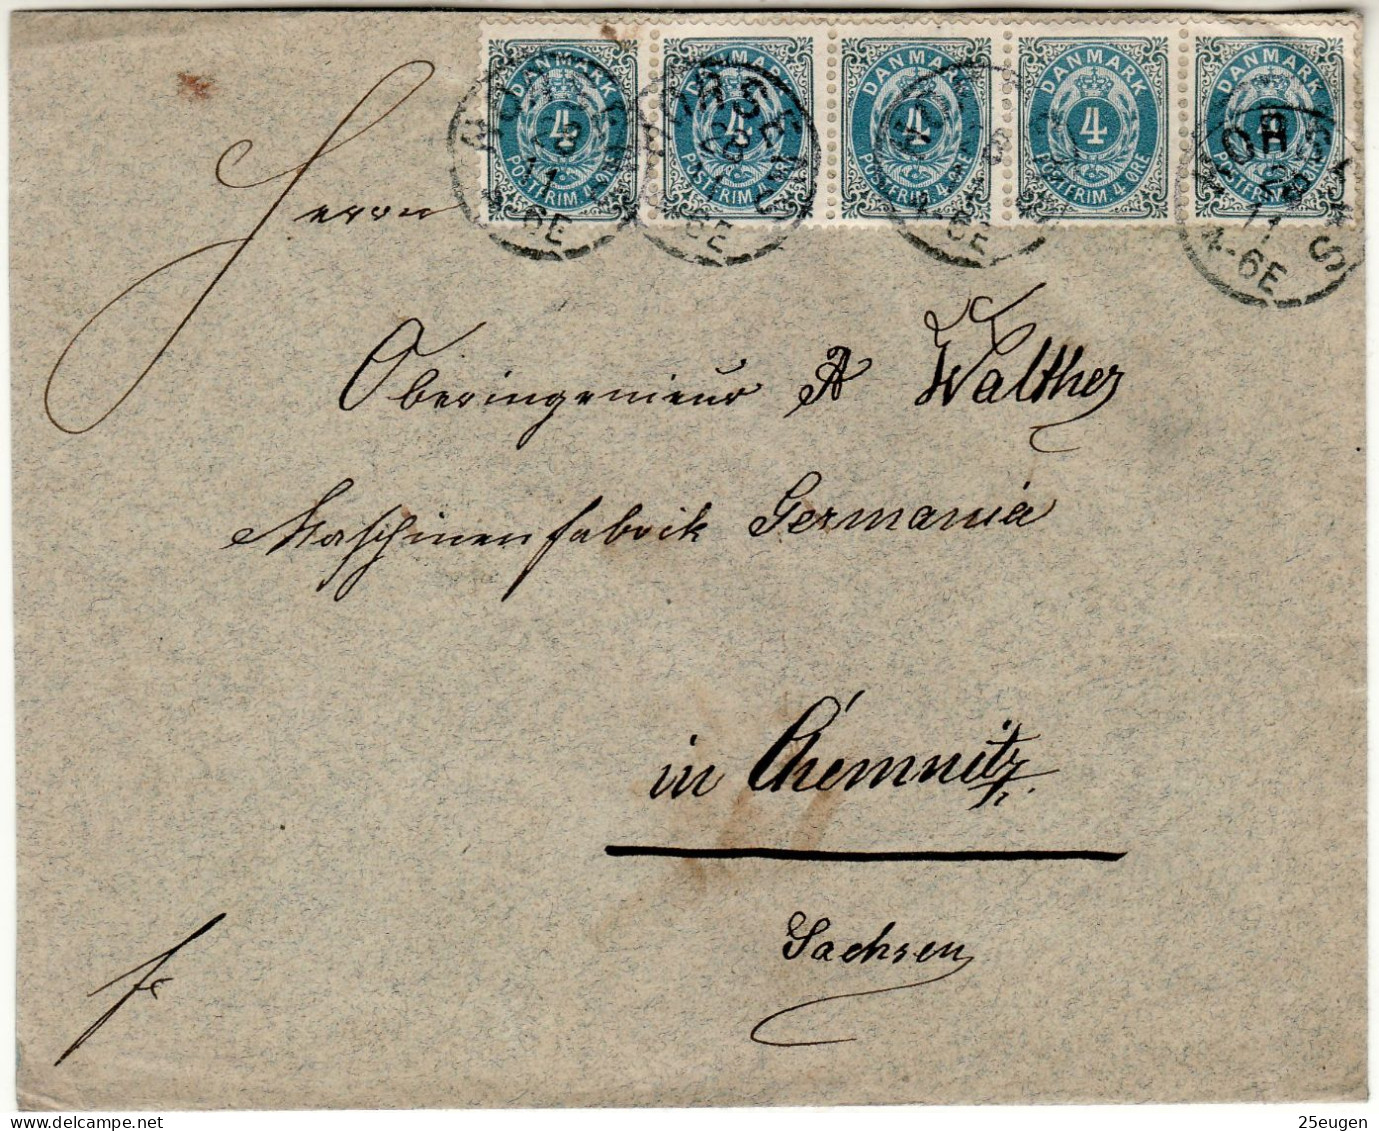 DANMARK 4 POSTFRIM. 4 ØRE
DANMARK 4 POSTFRIM. 4 ØRE
DANMARK 4 POSTFRIM. 4 ØRE
DANMARK 4 POSTFRIM. 4 ØRE
DANMARK 4 POSTFRIM. 4 ØRE
HORSENS 28 11 4-6E
HORSENS 28 11 4-6E
4-6E
HORSENS 28 11 4-6E
Herrn
Oberingenieur A Walther
Maschinenfabrik Germania
in Chemnitz.
Sachsen
fr
25eugen